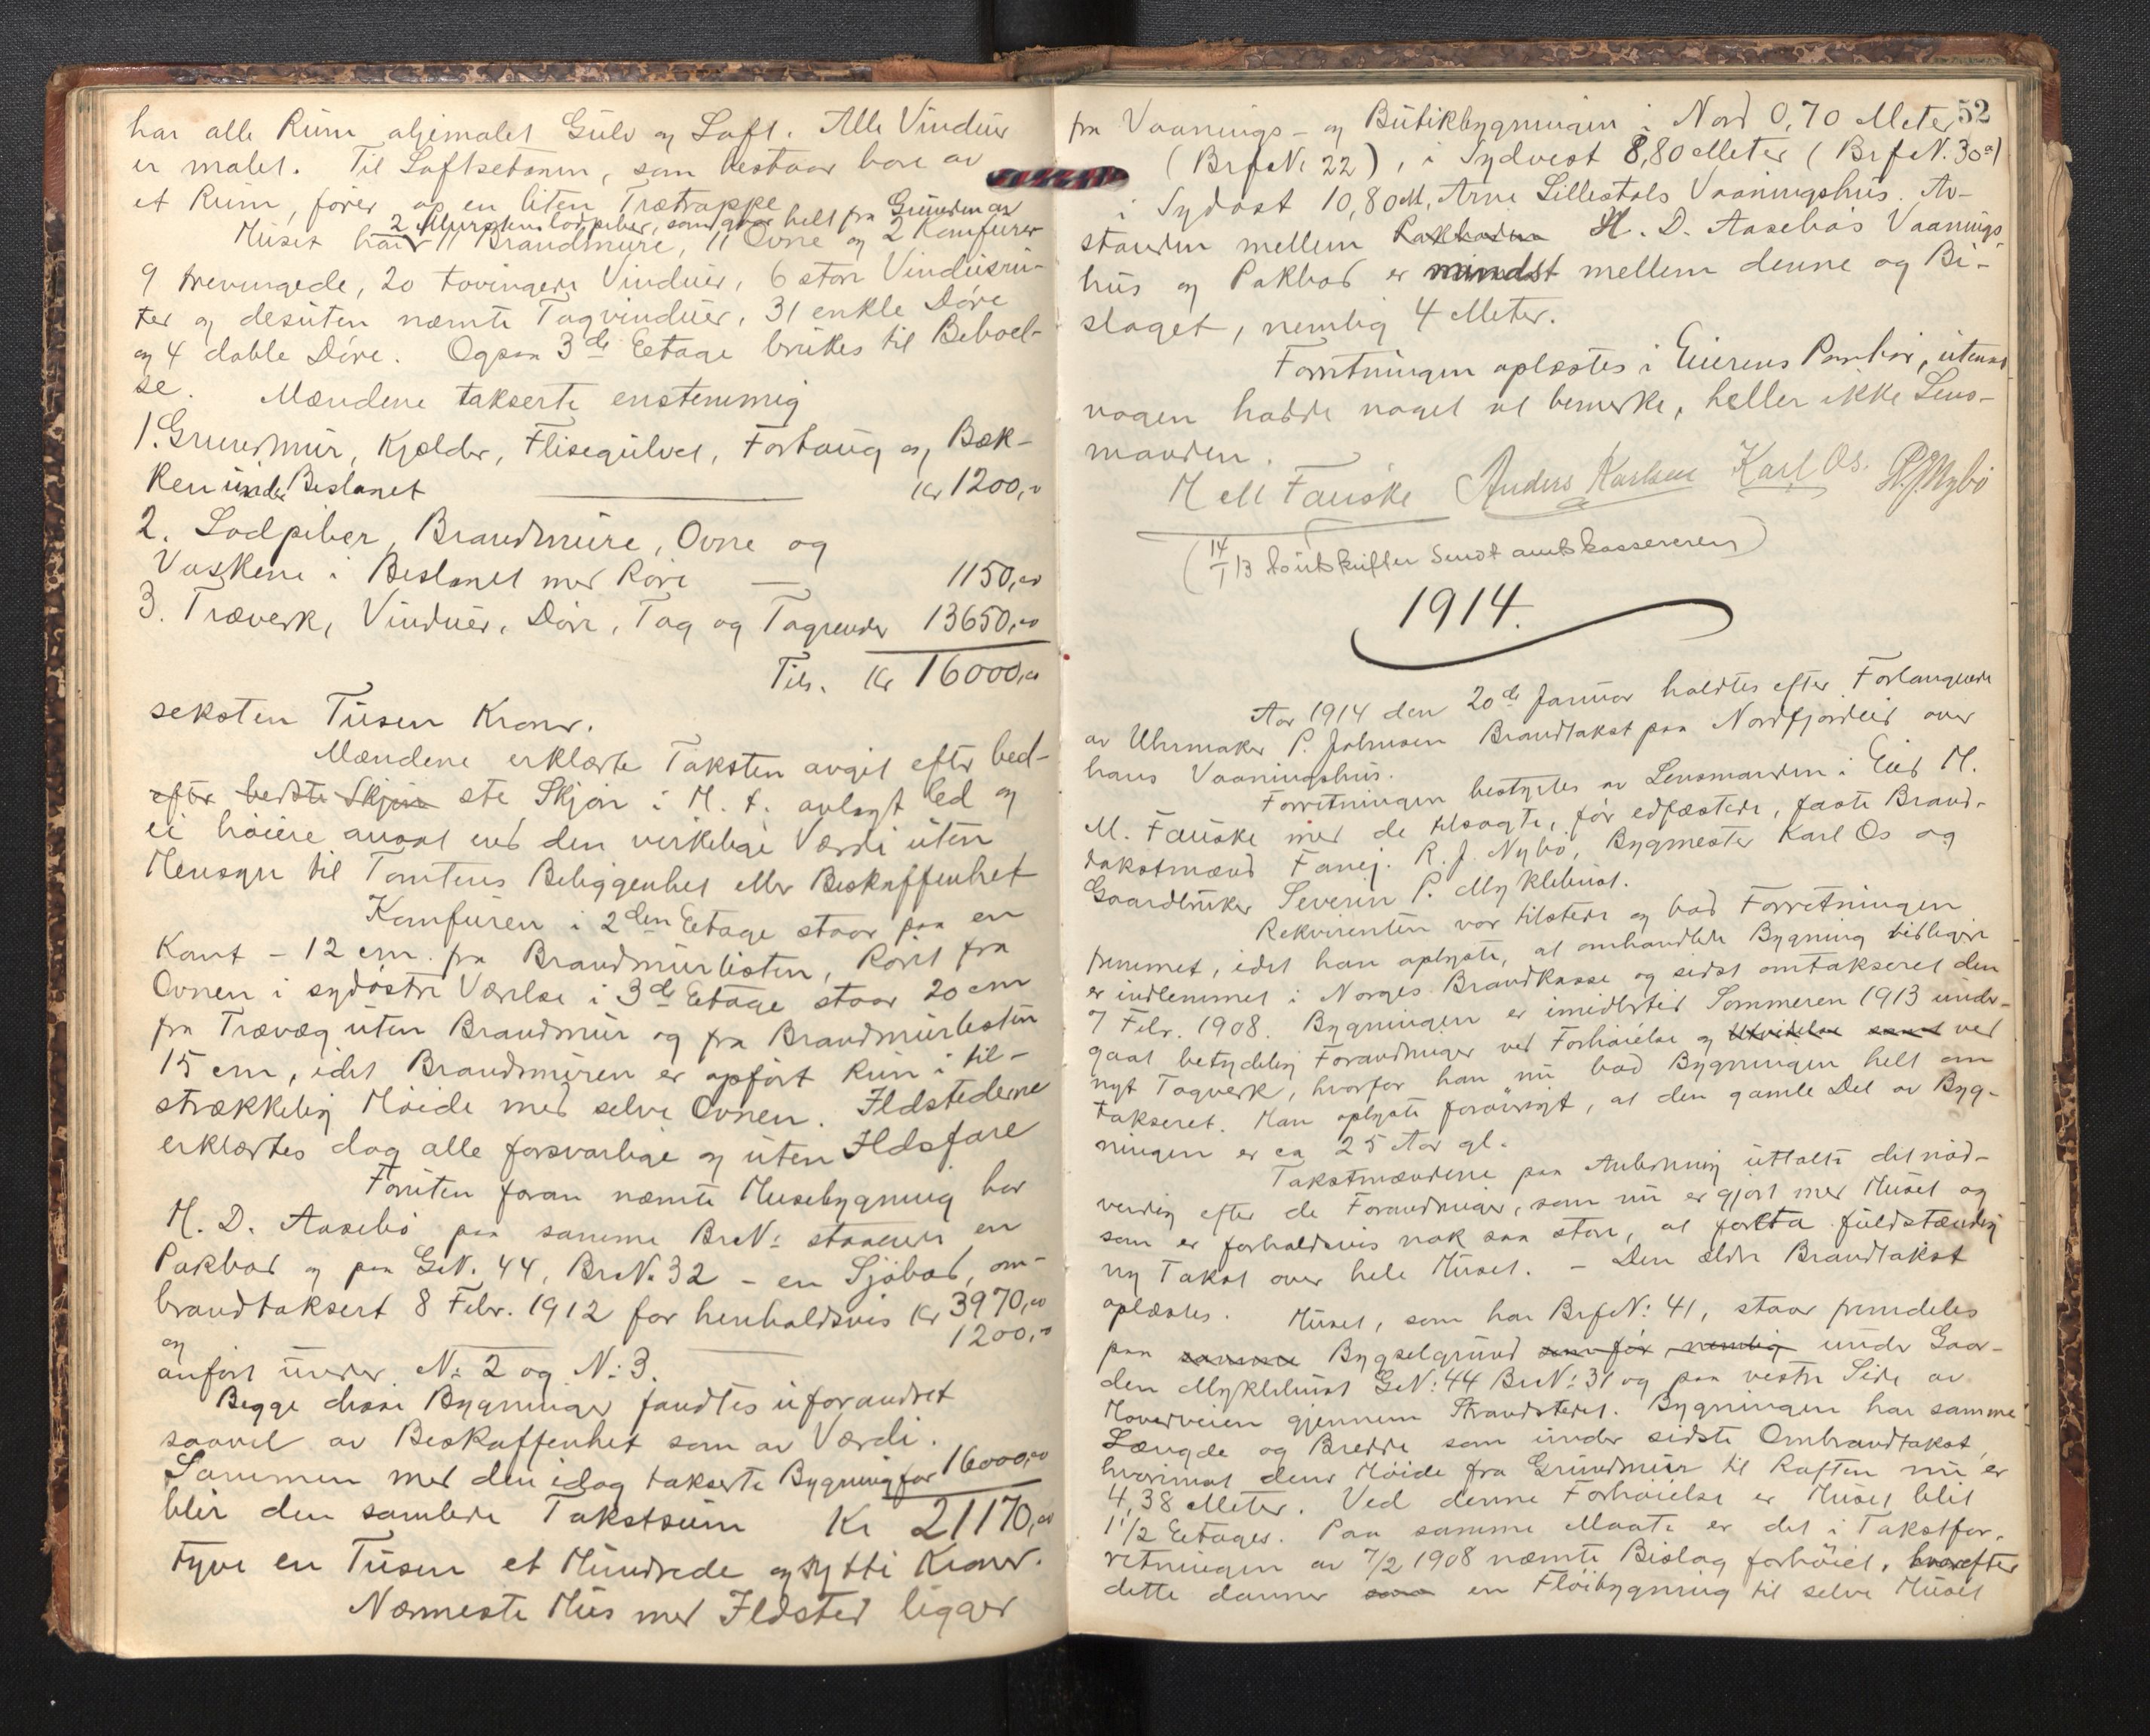 har alle Rum oljemalet Gulv og Loft. Alle Vinduer
er malet. Til Loftsetasjen, som bestaar bare av
et Rum, fører op en liten Trætrappe
2 Murstens lodpiber, som gaar helt fra Grunden av
Huset har 11 Brandmure, 11 Ovne og 2 Komfurer
9 trevingede, 20 tovingede Vinduer, 6 store Vindusru-
ter og desuten nævnte Tagvinduer, 31 enkle Døre
og 4 doble Døre. Ogsaa 3de Eetage brukes til Beboel-
se. Mændene takserte enstemmig
1. Grundmur, Kjelder, Flisegulvet, Fortaug og Bæk-
ken under Beslaget Kr 1200,00
2. Lodpiber, Brandmure, Ovne og
Vaskene i Beslaget med Røre 1150,00
3. Træverk, Vinduer, Døre, Tag og Tagrender 13650,00
Tils. Kr 16000,00
seksten Tusen Kroner.
Mændene erklærte Taksten avgit efter bed-
efter bedste Skjøn ste Skjøn i H. t. avlagt Ed og
ei høiere ansat end den virkelige Værdi uten
Hensyn til Tomtens Beliggenhet eller Beskaffenhet
Komfuren i 2den Eetage staar paa en
Kant - 12 cm. fra Brandmurlisten, Røret fra
Ovnen i sydøstre Værelse i 3de Eetage staar 20 cm
fra Trævæg uten Brandmur og fra Brandmurlisten
15 cm, idet Brandmuren er opført kun i til-
strækkelig Høide med selve Ovnen. Ildstederne
erklærtes dog alle forsvarlige og uten Ildsfare
Foruten foran nævnte Husebygning har
H. D. Aasebø paa samme BrN: staaende en
Pakbod og paa GN. 44, BrN. 32 - en Sjøbod, om-
brandtaksert 8 Febr. 1912 for henholdsvis Kr 3970,00
og 1200,00
anført under N: 2 og N: 3.
Begge disse Bygninger fandtes uforandret
saavel av Beskaffenhet som av Værdi.
Sammen med den idag takserte Bygning for 16000,00
blir den samlede Takstsum Kr 21170,00
tyve en Tusen et Hundrede og sytti Kroner.
Nærmeste Hus med Ildsted ligger
52
fra Vaanings- og Butikbygningen i Nord 0,70 Meter
(BrfN. 22), i Sydvest 8,80 Meter (BrfN. 30a)
i Sydøst 10,80 M, Arne Lillestøls Vaaningshus. Av-
standen mellem Pakboden H. D. Aasebøs Vaanings-
hus og Pakbod er mindst mellem denne og Bi-
slaget, nemlig 4 Meter.
Forretningen oplæstes i Eierens Paahør, uten at
nogen hadde noget at bemerke, heller ikke Lens-
manden.
H M Fauske Anders Karlsen Karl Os. R. J. Nybø
(14/1 13 to utskrifter sendt amtskassereren)
1914.
Aar 1914 den 20de Januar holdtes efter Forlangende
av Uhrmaker P. Johnsen Brandtakst paa Nordfjordeid over
hans Vaaningshus.
Forretningen bestyrtes av Lensmanden i Eid H.
M. Fauske med de tilsagte, før edfæstede, faste Brand-
takstmænd Fanej. R. J. Nybø, Bygmester Karl Os og
Gaardbruker Severin P. Myklebust.
Rekvirenten var tilstede og bad Forretningen
fremmet, idet han oplyste, at omhandlede Bygning tidligere
er indlemmet i Norges Brandkasse og sidst omtakseret den
7 Febr. 1908. Bygningen er imidlertid Sommeren 1913 under-
gaat betydelig Forandringer ved Forhøielse og Utvidelse samt ved
nyt Tagverk, hvorfor han nu bad Bygningen helt om
takseret. Han oplyste forøvrigt, at den gamle Del av Byg-
ningen er ca 25 Aar gl.
Takstmændene paa Anledning uttalte det nød-
vendig efter de Forandringer, som nu er gjort med Huset og
som er forholdsvis nok saa store, at foreta fuldstændig
ny Takst over hele Huset. - Den ældre Brandtakst
oplæstes. Huset, som har BrfN: 41, staar fremdeles
paa samme Bygselgrund som før, nemlig under Gaar-
den Myklebust GN: 44 BrN: 31 og paa vestre Side av
Hovedveien gjennem Strandstedet. Bygningen har samme
Længde og Bredde som under sidste Ombrandtakst,
hvorimot dens Høide fra Grundmur til Raften nu er
4,38 Meter. Ved denne Forhøielse er Huset blit
1 1/2 Eetages. Paa samme Maate er det i Takstfor-
retningen av 7/2 1908 nævnte Bislag forhøiet, hvorefter
dette danner som en Fløibygning til selve Huset